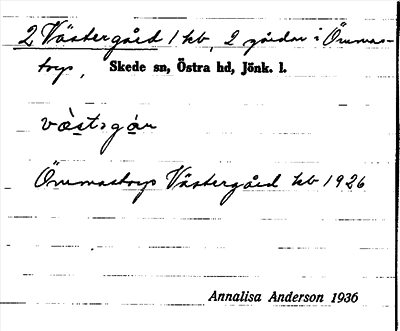 2 Västergård 1 kb, 2 gårdar i Örumas-
torp, Skede sn, Östra hd, Jönk. l.
Örumastorps Västergård kb 1926
Annalisa Anderson 1936